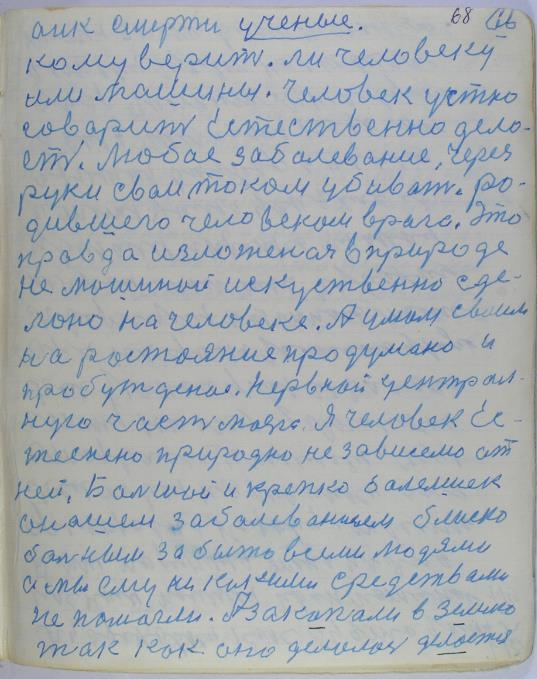 68 66
аик смерти ученые.
кому верит. ли человеку
или машины. Человек устно
говорит естественно дело-
ет. Любое заболевание, через
руки свои током убиват. ро-
дившего человеком врага. Это
правда изложеная в природе
не машиной искуственно сде-
лоно на человеке. А умом своим
на ростояние продумано и
пробуждение. Нервной централ-
ную част мозга. Я человек ес-
тествено природно не зависемо от
ней, Болшой и крепко болеешек
онашем заболеванием блиско
болным забыто всеми людями
а мы ему ни какими средствами
не помогли. А закопали в землю
так как оно делолос делается